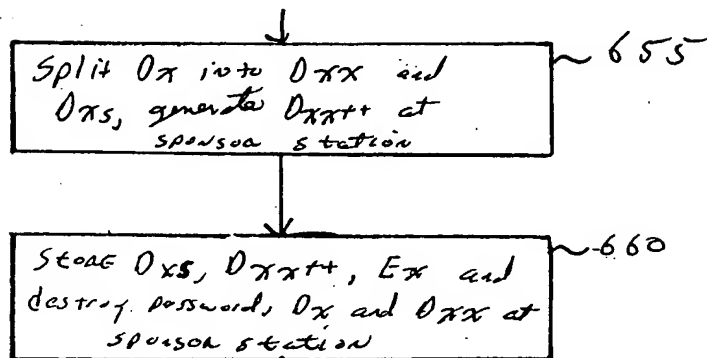 Split Dx into Dxx and
Dxs, generate Dxx++ at
sponsor station
655
Store Dxs, Dxx++, Ex and
destroy password, Dx and Dxx at
sponsor station
660